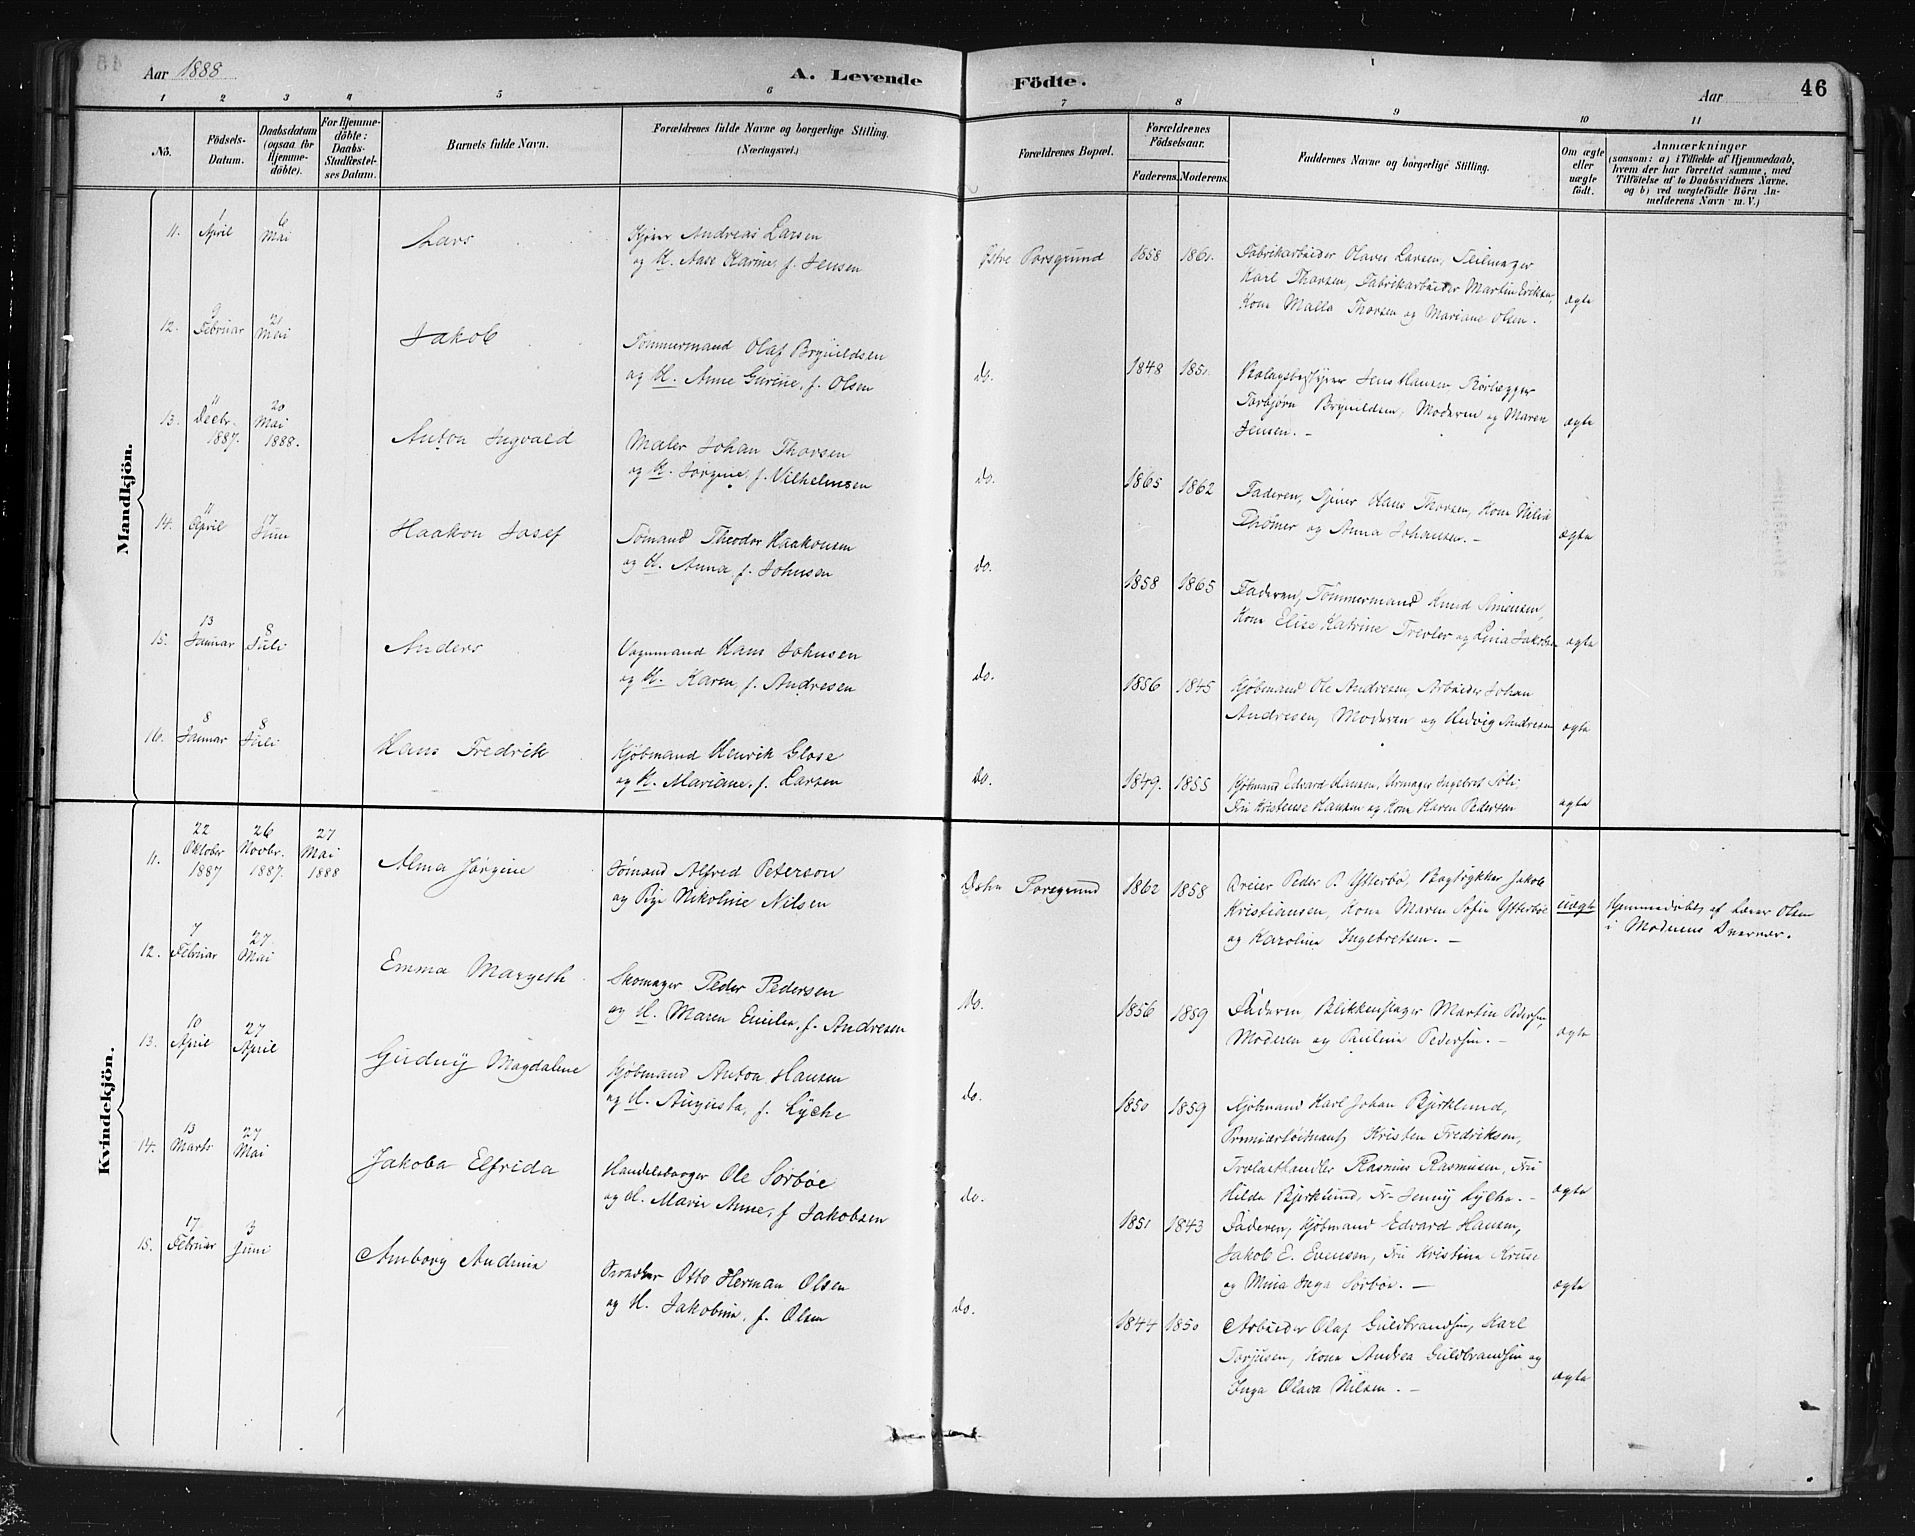 Aar 1888
A. Levende Födte.
Aar
46
1 2 3 4 5 6 7 8 9 10 11
No.
Födsels-Datum.
Daabsdatum (ogsaa for Hjemmedöbte).
For Hjemmedöbte: Daabs-Stadfæstelses Datum.
Barnets fulde Navn.
Forældrenes fulde Navne og borgerlige Stilling. (Næringsvei.)
Forældrenes Bopæl.
Forældrenes Födselsaar.
Faderens. Moderens.
Faddernes Navne og borgerlige Stilling.
Om ægte eller uægte födt.
Anmærkninger
(saasom: a) i Tilfælde af Hjemmedaab,
hvem der har forrettet samme, med
Tilföielse af to Daabsvidners Navne,
og b) ved uægtefödte Börn Anmelderens Navn m. V.)
Mandkjön.
11. 1 April 6 Mai Lars
Andreas Larsen
og H. Aase Karine, f. Jensen
Østre Porsgrund 1858 1861.
Fabrikarbeider Olaves Larsen,
Karl Thorsen, Fabrikarbeider Martin Eriksen,
Kone Malla Thorsen og Mariane Olsen.
ægte
12. 9 Februar 21 Mai Jakob
Tømmermand Olaf Brynildsen
og H. Anne Gurine, f. Olsen
do. 1848 1851.
Jens Hansen
Torbjørn Brynildsen, Moderen og Maren
Jensen. –
ægte
13. 11 Decbr. 1887. 20 Mai 1888. Anton Ingvald
Maler Johan Thorsen
og H. Jørgine, f. Vilhelmsen
do. 1865 1862
Faderen, Hans Thorsen, Kone
og Anna Johansen. –
ægte
14. 11 April 17 Juni Haakon Josef
Sømand Theodor Haakonsen
og H. Anna, f. Johnsen
do. 1858 1865
Faderen, Tømmermand Knud Simensen,
Kone Elise Katrine Trevler og Lina Jakobsen
ægte
15. 13 Januar 8 Juli Anders
Vognmand Hans Johnsen
og H. Karen, f. Andresen
do. 1856 1845
Kjøbmand Ole Andresen, Arbeider Johan
Andresen, Moderen og Hedvig Andresen
ægte
16. 8 Januar 8 Juli Hans Fredrik
Kjøbmand Henrik Glose
og H. Mariane, f. Larsen
do. 1849. 1855
Kjøbmand Edvard Hansen, Urmager Ingebret
Fru Kristense Hansen og Kone Karen Pedersen
ægte
Kvindekjön.
11. 22 Oktober 1887 26 Novbr. 1887. 27 Mai 1888 Alma Jørgine
Sømand Alfred Peterson
og Pige Nikoline Nilsen
Østre Porsgrund 1862 1858
Dreier Peder P. Ytterbø, Bogtrykker Jakob
Kristiansen, Kone Maren Sofie Ytterbøe
og Karoline Ingebretsen. –
uægte
Hjemmedøbt af Lærer Olsen
i Moderens Nærvær.
12. 7 Februar 27. Mai Emma Margeth
Skomager Peder Pedersen
og H. Maren Emilie, f. Andresen
do. 1856 1859
Faderen, Blikkenslager Martin Pedersen,
Moderen og Pauline Pedersen. –
ægte
13. 10 April 27 April Gudny Magdalene
Kjøbmand Anton Hansen
og H. Augusta, f. Lyche
do. 1850 1859
Kjøbmand Karl Johan Bjerklund,
Premierløitnant Kristen Fredriksen,
Trælasthandler Rasmus Rasmusen, Fru
Hilda Bjerklund, Fr. Jenny Lyche. –
ægte
14. 13 Marts 27 Mai Jakoba Elfrida
Handelsborger Ole Sørbøe
og H. Marie Anne, f. Jakobsen
do. 1851 1843
Faderen, Kjøbmand Edvard Hansen,
Jakob E. Evensen, Fru Kristine Kruse
og Mina Inga Sørbøe. –
ægte
15. 17 Februar 3 Juni Amborg Andrine
Otto Herman Olsen
og H. Jakobine, f. Olsen
do. 1844 1850
Arbeider Olaf Guldbrandsen, Karl
Torjusen, Kone Andrea Guldbrandsen og
Inga Olava Nilsen. –
ægte